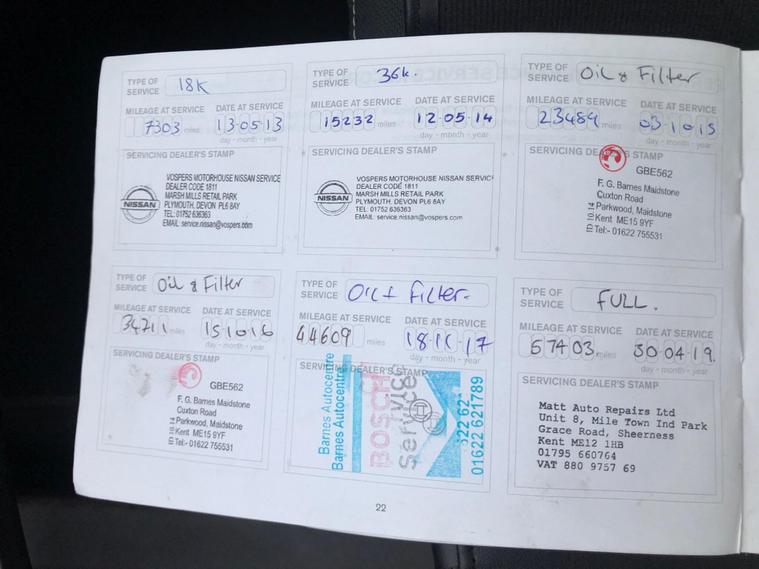 TYPE OF SERVICE 18K
MILEAGE AT SERVICE DATE AT SERVICE
7303 miles 13·05·13
day - month - year
SERVICING DEALER'S STAMP
NISSAN
VOSPERS MOTORHOUSE NISSAN SERVICE
DEALER CODE 1811
MARSH MILLS RETAIL PARK
PLYMOUTH. DEVON PL6 8AY
TEL: 01752 636363
EMAIL: service.nissan@vospers.com
TYPE OF SERVICE 36k.
MILEAGE AT SERVICE DATE AT SERVICE
15232 miles 12·05·14
day - month - year
SERVICING DEALER'S STAMP
NISSAN
VOSPERS MOTORHOUSE NISSAN SERVIC
DEALER CODE 1811
MARSH MILLS RETAIL PARK
PLYMOUTH. DEVON PL6 8AY
TEL: 01752 636363
EMAIL: service.nissan@vospers.com
TYPE OF SERVICE Oil & Filter
MILEAGE AT SERVICE DATE AT SERVICE
23489 miles 03·10·15
day - month - year
SERVICING DEALER'S STAMP
GBE562
F. G. Barnes Maidstone
Cuxton Road
Parkwood, Maidstone
Kent ME15 9YF
Tel:- 01622 755531
TYPE OF SERVICE Oil & Filter
MILEAGE AT SERVICE DATE AT SERVICE
34211 miles 15·10·16
day - month - year
SERVICING DEALER'S STAMP
GBE562
F. G. Barnes Maidstone
Cuxton Road
Parkwood, Maidstone
Kent ME15 9YF
Tel:- 01622 755531
TYPE OF SERVICE OIL + FILTER.
MILEAGE AT SERVICE DATE AT SERVICE
44609 miles 18·11·17
day - month - year
SERVICING DEALER'S STAMP
Barnes Autocentre
Barnes Autocentre
BOSCH
Service
01622 621789
TYPE OF SERVICE FULL.
MILEAGE AT SERVICE DATE AT SERVICE
57403 miles 30·04·19.
day - month - year
SERVICING DEALER'S STAMP
Matt Auto Repairs Ltd
Unit 8, Mile Town Ind Park
Grace Road, Sheerness
Kent ME12 1HB
01795 660764
VAT 880 9757 69
22